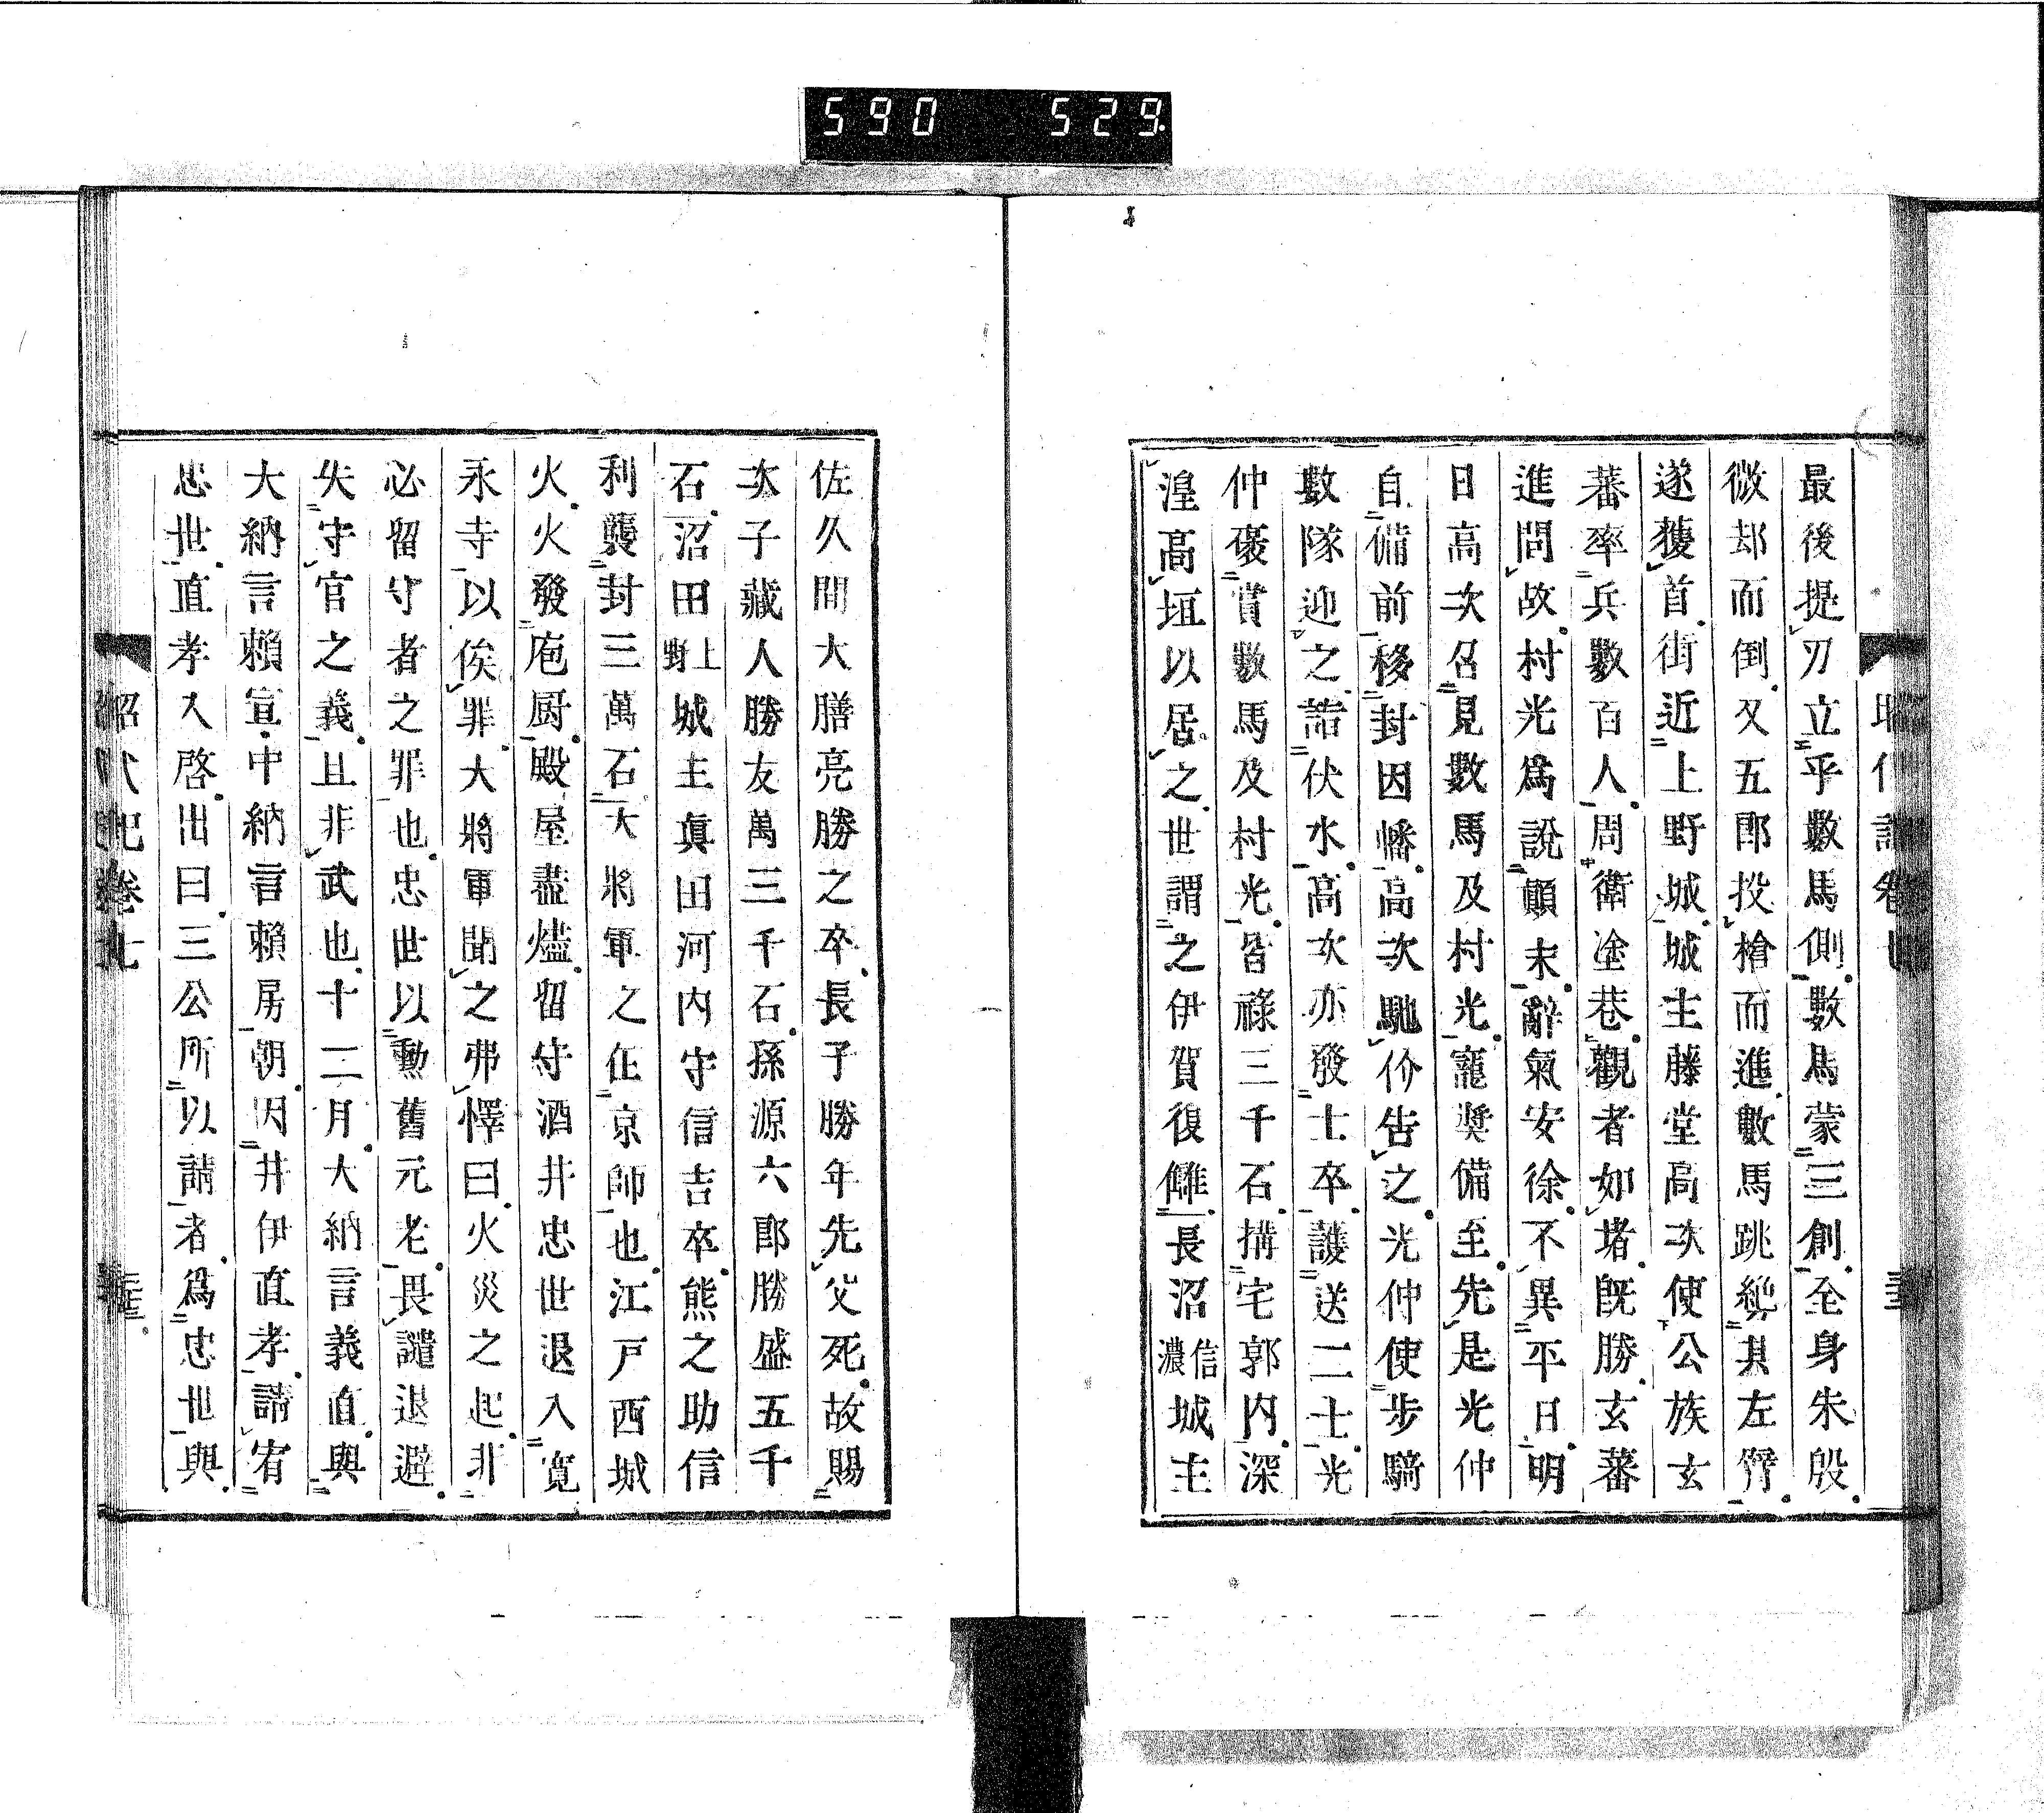 590 529
最後提刃立乎數馬側數馬蒙三創全身朱殷
微却而倒又五郎投槍而進數馬跳𫝑其左臂
遂獲首街近上野城城主藤堂高次使公族玄
蕃率兵數百人周衛塗巷觀者如堵旣勝玄蕃
進問故村光爲說顚末辭氣安徐不異平日明
日高次召見數馬及村光寵奬備至先是光仲
自備前移封因幡高次馳价告之光仲使步騎
數隊迎之詣伏水高次亦發士卒護送二士光
仲襃賞數馬及村光皆祿三千石搆宅郭内深
湟高垣以居之世謂之伊賀復讎長沼信濃城主
佐久間大膳亮勝之卒長子勝年先父死故賜
次子藏人勝友萬三千石孫源六郎勝盛五千
石沼田上野城主眞田河内守信吉卒熊之助信
利襲封三萬石大將軍之在京師也江戸西城
火火發庖厨殿屋盡燼留守酒井忠世退入寬
永寺以俟罪大將軍聞之弗懌曰火災之起非
必留守者之罪也忠世以勳舊元老畏譴退避
失守官之義且非武也十二月大納言義直與
大納言賴宣中納言賴房朝因井伊直孝請宥
忠世直孝入啓出曰三公所以請者爲忠世與
昭代記卷七